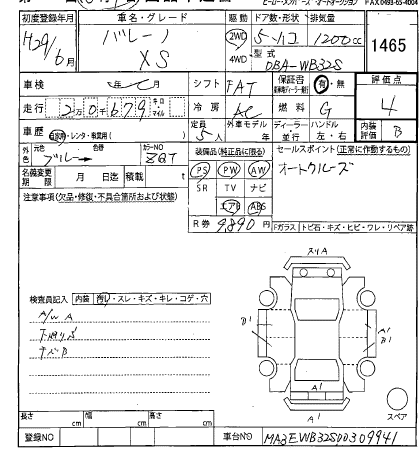 初度登録年月 車名・グレード 駆動 ドア数・形状 排気量
H29/6月 バレーノ XS 2WD 4WD 5ハコ 1200cc
型式 DBA-WB32S
1465
車検 年 月 シフト FAT 保証書 有・無 評価点
走行 2万0千679 キロ マイル 冷房 AC 燃料 G 4
車歴 自家用・レンタ・教習用( ) 定員 5人 外車モデル 年 ディーラー・並行 ハンドル 左・右 内装評価 B
外色 元色 ブルー 色替 カラーNO ZQT
装備品(純正品に限る) セールスポイント(正常に作動するもの)
名義変更期限 月 日迄 積載 t
PS PW AW オートクルーズ
注意事項(欠品・修復・不具合箇所および状態)
SR TV ナビ
エアB ABS
R券 9,890円
Fガラス トビ石・キズ・ヒビ・ワレ・リペア跡
スリA
検査員記入 内装 汚レ・スレ・キズ・キレ・コゲ・穴
A/W A
B' A'
B'
A'
スペア
A'
長さ cm 幅 cm 高さ cm
登録NO 車台NO MA3EWB32S00309941